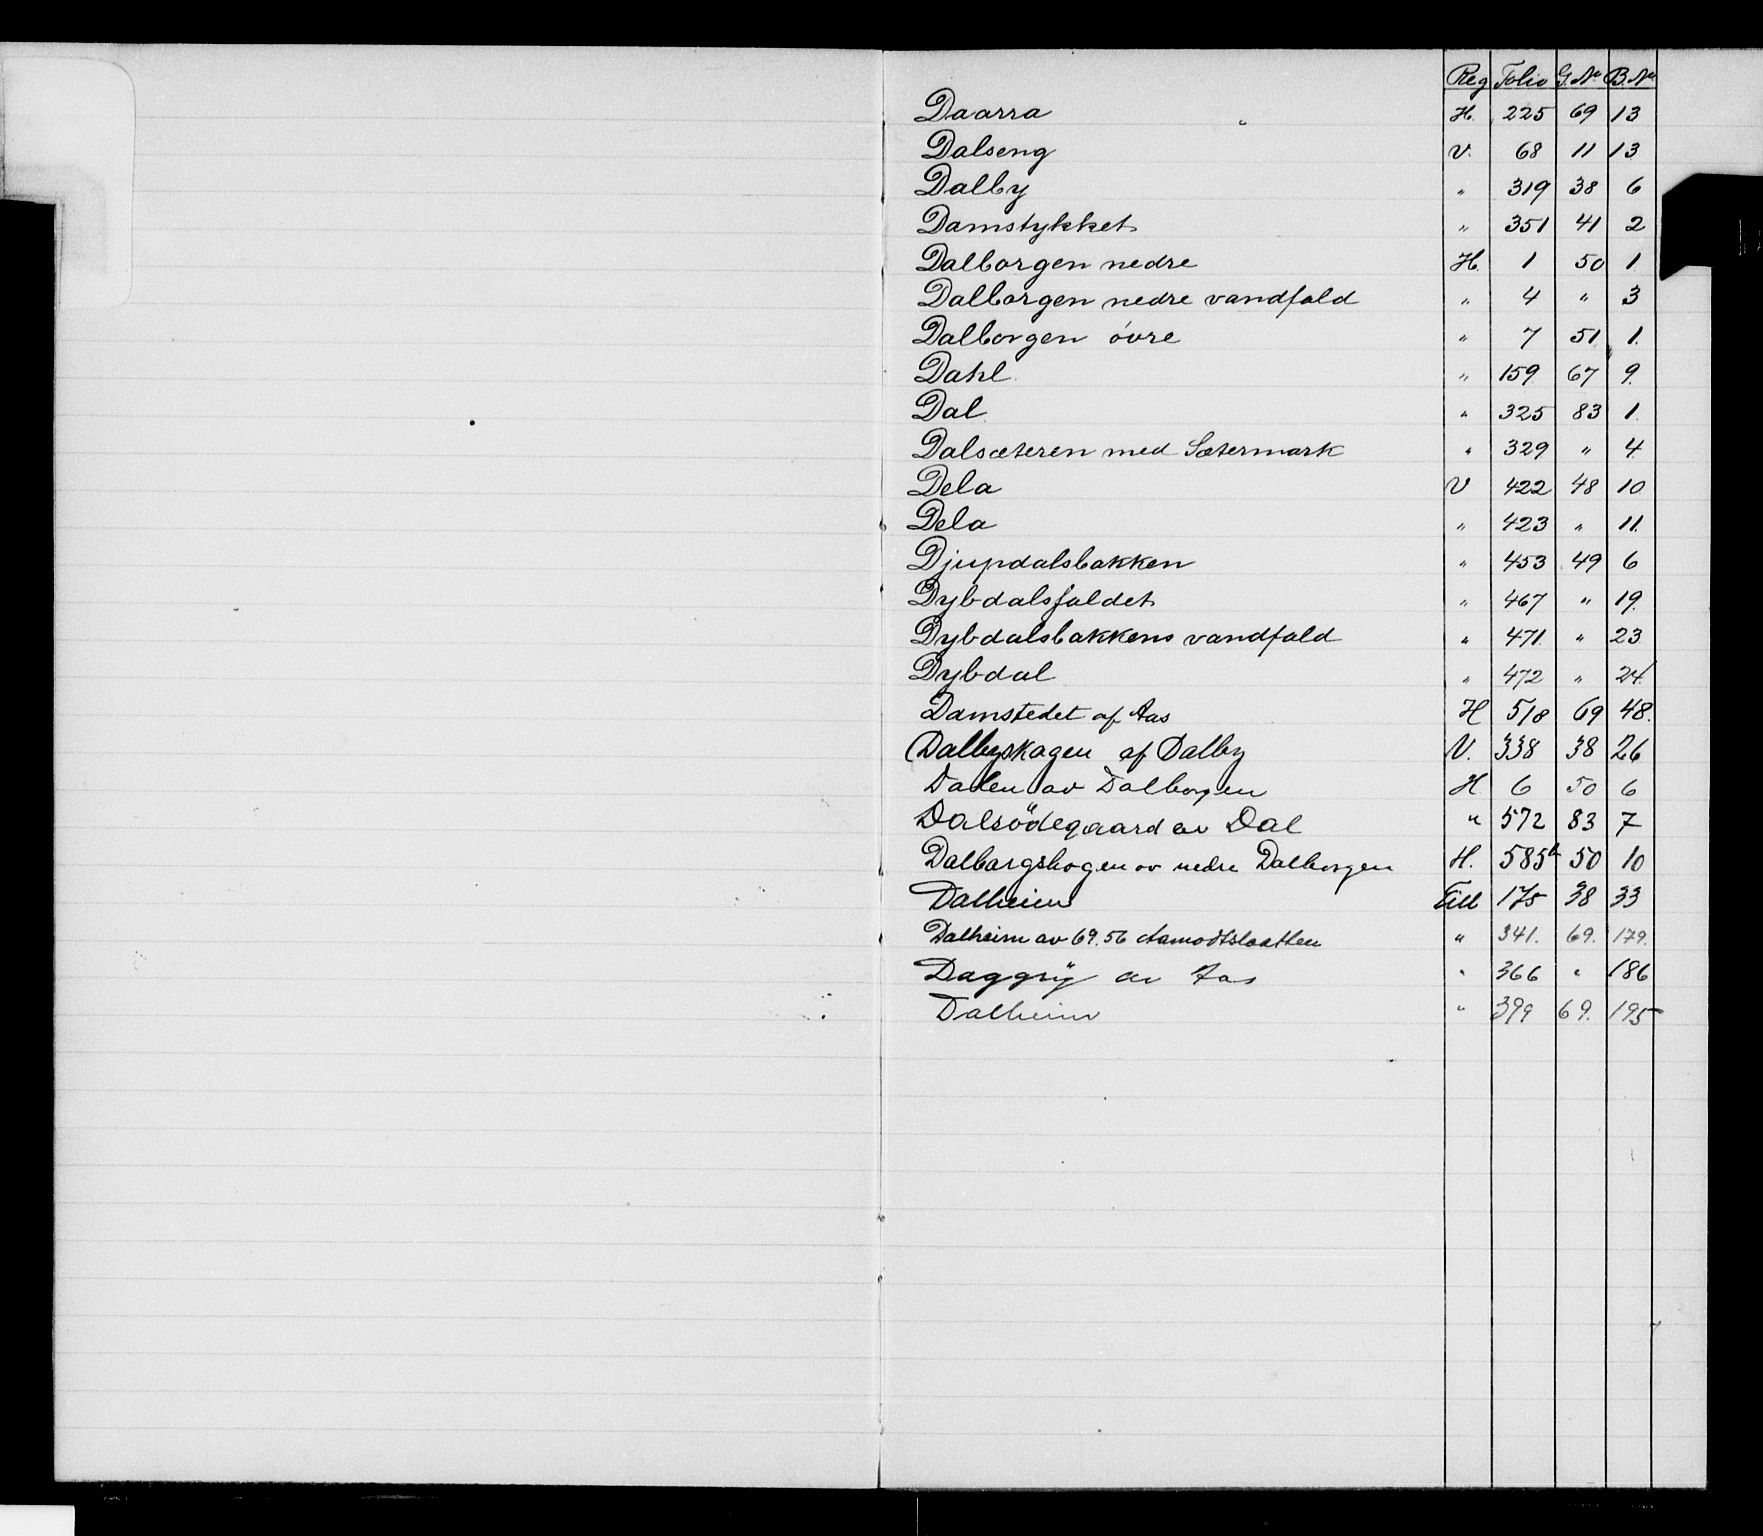 Reg Folio G.No B.No
Daarra H. 225 69 13
Dalseng V. 68 11 13
Dalby " 319 38 6
Damstykket " 351 41 2
Dalborgen nedre H. 1 50 1
Dalborgen nedre vandfald " 4 " 3
Dalborgen övre " 7 51 1.
Dahl " 159 67 9.
Dal " 325 83 1.
Dalsæteren med Sætermark " 329 " 4
Dela V 422 48 10
Dela " 423 " 11.
Djupdalsbakken " 453 49 6
Dybdalsfaldet " 467 " 19.
Dybdalsbakkens vandfald " 471. " 23
Dybdal " 472 " 24.
Damstedet af Aas H 518 69 48.
Dalbyskagen af Dalby V. 338 38 26
Dalen av Dalborgen H 6 50 6
Dalsödegaard av Dal " 572 83 7
Dalborgshogen av nedre Dalborgen H. 585 50 10
Dalheim Till 175 38 33
Dalheim av 69.56 Aamodtslaatten " 341. 69. 179.
Daggry av Aas " 366 " 186
Dalheim " 399 69. 195